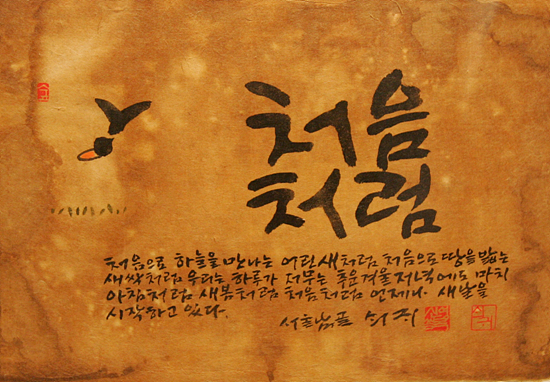 처음
처럼
처음으로 하늘을 만나는 어린 새처럼 처음으로 땅을 밟는
새싹처럼 우리는 하루가 저무는 추운 겨울 저녁에도 마치
아침처럼 새봄처럼 처음처럼 언제나 새날을
시작하고 있다.